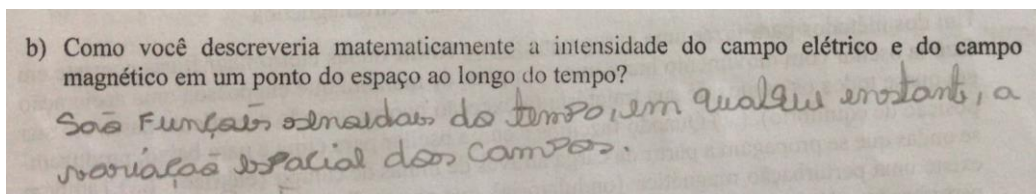 b) Como você descreveria matematicamente a intensidade do campo elétrico e do campo
magnético em um ponto do espaço ao longo do tempo?
São Funções senoidais do tempo, em qualquer instante, a
variação espacial dos campos.